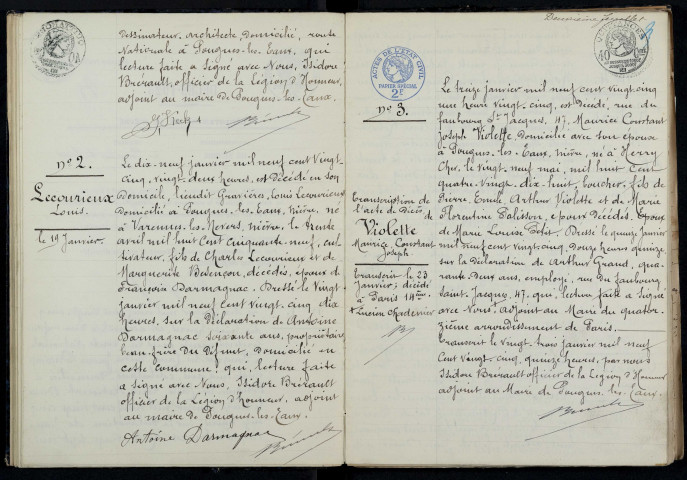 dessinateur, architecte, domicilié, route
Nationale à Pougues-les-Eaux, qui
lecture faite a signé avec Nous, Isidore
Brérault, officier de la Légion d'Honneur,
adjoint au maire de Pougues-les-Eaux.
N° 2.
Lecourieux
Louis.
le 19 Janvier.
Le dix-neuf janvier mil neuf cent vingt-
cinq, vingt-deux heures, est décédé en son
domicile, lieudit Gravières, Louis Lecourieux
domicilié à Pougues-les-Eaux, Nièvre, né
à Varennes-les-Nevers, Nièvre, le trente
avril mil huit cent cinquante-neuf, cul-
tivateur, fils de Charles Lecourieux et de
Marguerite Besançon, décédés, époux de
Françoise Darmagnac. Dressé le vingt
janvier mil neuf cent vingt-cinq dix
heures, sur la déclaration de Antoine
Darmagnac soixante ans, propriétaire
beau-frère du défunt, domicilié en
cette commune, qui, lecture faite
a signé avec Nous, Isidore Brérault
officier de la Légion d'Honneur, adjoint
au maire de Pougues-les-Eaux.
Antoine Darmagnac
ACTES DE L'ETAT CIVIL
PAPIER SPECIAL
2F
N° 3.
transcription de
l'acte de Décès de
Violette
Maurice Constant
Joseph
transcrit le 23
Janvier; décédé
à Paris 14ème
Le treize janvier mil neuf cent vingt-cinq
une heure vingt-cinq, est décédé, rue du
faubourg St Jacques, 47, Maurice Constant
Joseph Violette, domicilié avec son épouse
à Pougues-les-Eaux, Nièvre, né à Herry
Cher, le vingt-neuf mai, mil huit cent
quatre-vingt-dix-huit, boucher, fils de
Pierre Emile Arthur Violette et de Marie
Florentine Salisson, époux décédés. Epoux
de Marie Louise Petit. Dressé le quinze janvier
mil neuf cent vingt-cinq, douze heures quinze
sur la déclaration de Arthur Grand, qua-
rante-deux ans, employé, rue du faubourg
Saint-Jacques, 47, qui, lecture faite a signé
avec Nous, adjoint au Maire du quator-
zième arrondissement de Paris.
transcrit le vingt-trois janvier mil neuf
cent vingt-cinq, quinze heures, par nous
Isidore Brérault officier de la Légion d'Honneur
adjoint au Maire de Pougues-les-Eaux.